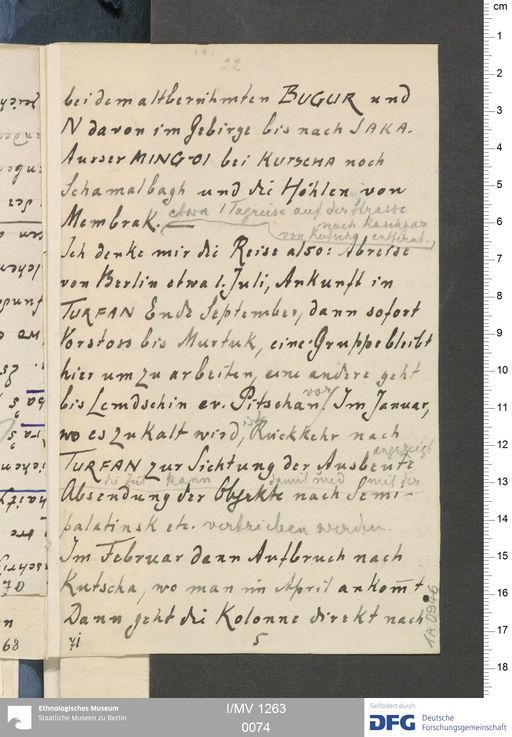 22
bei dem altberühmten BUGUR und
N davon im Gebirge bis nach JAKA-
Ausser MING-OI bei KUTSCHA noch
Schamalbagh und die Höhlen von
Membrak. etwa 1 Tagreise auf der Strasse
nach Kaschgar
von Kutscha entfernt.
Ich denke mir die Reise also: Abreise
von Berlin etwa 1. Juli, Ankunft in
TURFAN Ende September, dann sofort
Vorstoss bis Murtuk, eine Gruppe bleibt
hier um zu arbeiten, eine andere geht
bis Lemdschin ev. Pitschan vor. Im Januar,
wo es zu kalt wird, ist Rückkehr nach
angezeigt
TURFAN zur Sichtung der Ausbeute
kann mit der
Absendung der Objekte nach Semi-
palatinsk etc. vertrieben werden.
Im Februar dann Aufbruch nach
Kutscha, wo man im April ankommt
Dann geht die Kolonne direkt nach
71
5
1A 0946
89
cm
1
2
3
4
5
6
7
8
9
10
11
12
13
14
15
16
17
18
Ethnologisches Museum
Staatliche Museen zu Berlin
I/MV 1263
0074
Gefördert durch
DFG Deutsche
Forschungsgemeinschaft